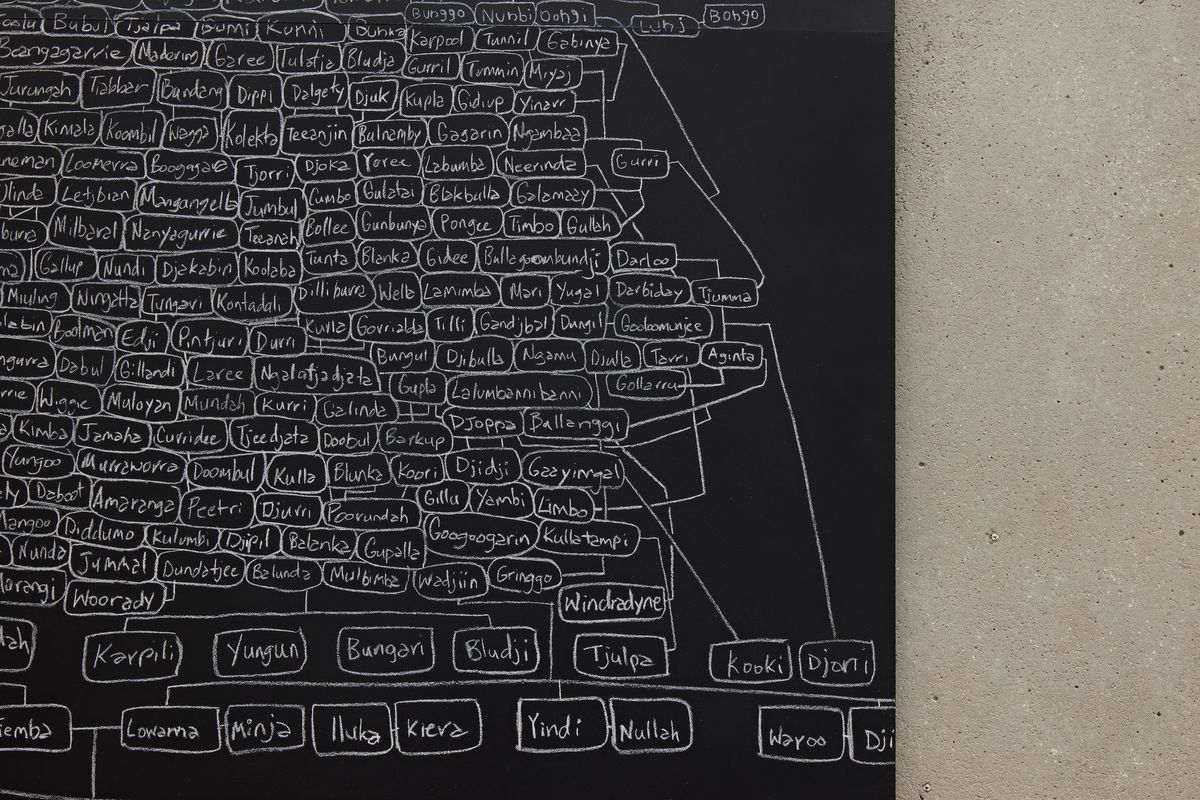 Bunggo Nunbi Oongi Lunj Bongo
Bubul Tjalpa Bumi Kunni Dunka
Karpool Tunnil Gabinya
Beangagarrie Madering Garee Tulatja Bludja
Gurril Tummin Miyaj
Jurungah Tiabbar Bundang Dippi Dalgety Djuk Kupla Gidiup Yinarr
Kimala Koombil Wagga Kolekta Teeanjin Balnamby Gagarin Ngambaa
Loomerra Boogagare Tjorri Djoka Yoree Labumba Neerinda Gurri
Letibian Mangangella Jumbul Cumbo Gulatai Blakbulla Galamaay
Milbaral Nanyagurrie Teeanah Bollee Gunbunya Pongee Timbo Gullah
Gallup Nundi Djakabin Koolaba Tunta Blanka Gidee Bullagoombundji Darloo
Miuling Ningatta Tungari Kontadali Dilliburra Welb Lamimba Mari Yugal Darbiday Tjumma
Boolman Edji Pintjuri Durri Kurla Gorrialda Tilli Gandjbal Dungil Gooloomunjee
Dabul Gillandi Laree Ngalatjadjata Bungul Djibulla Ngamu Djulla Tarri Aginta
Wiggie Muloyan Mundah Kurri Galinda Gupla Lalumbannibanni Gollarru
Kimba Jamaha Curridee Tjeedjata Doobul Barkup Djoppa Bullanggi
Yungoo Murraworra Doombul Kulla Blunka Koori Djidji Gaayimgal
Daboot Amaranga Peetri Djurri Poorundah Gillu Yambi Limbo
Diddumo Kulumbi Djipil Balanka Gupalla Googoogarin Kullatampi
Nunda Jummal Dundatjee Balunda Mulbimba Wadjiin Gringgo
Woorady Windradyne
Karpili Yungun Bungari Bludji Tjulpa Kooki Djorri
Lowanna Minja Iluka Kiera Yindi Nullah Waroo Dji